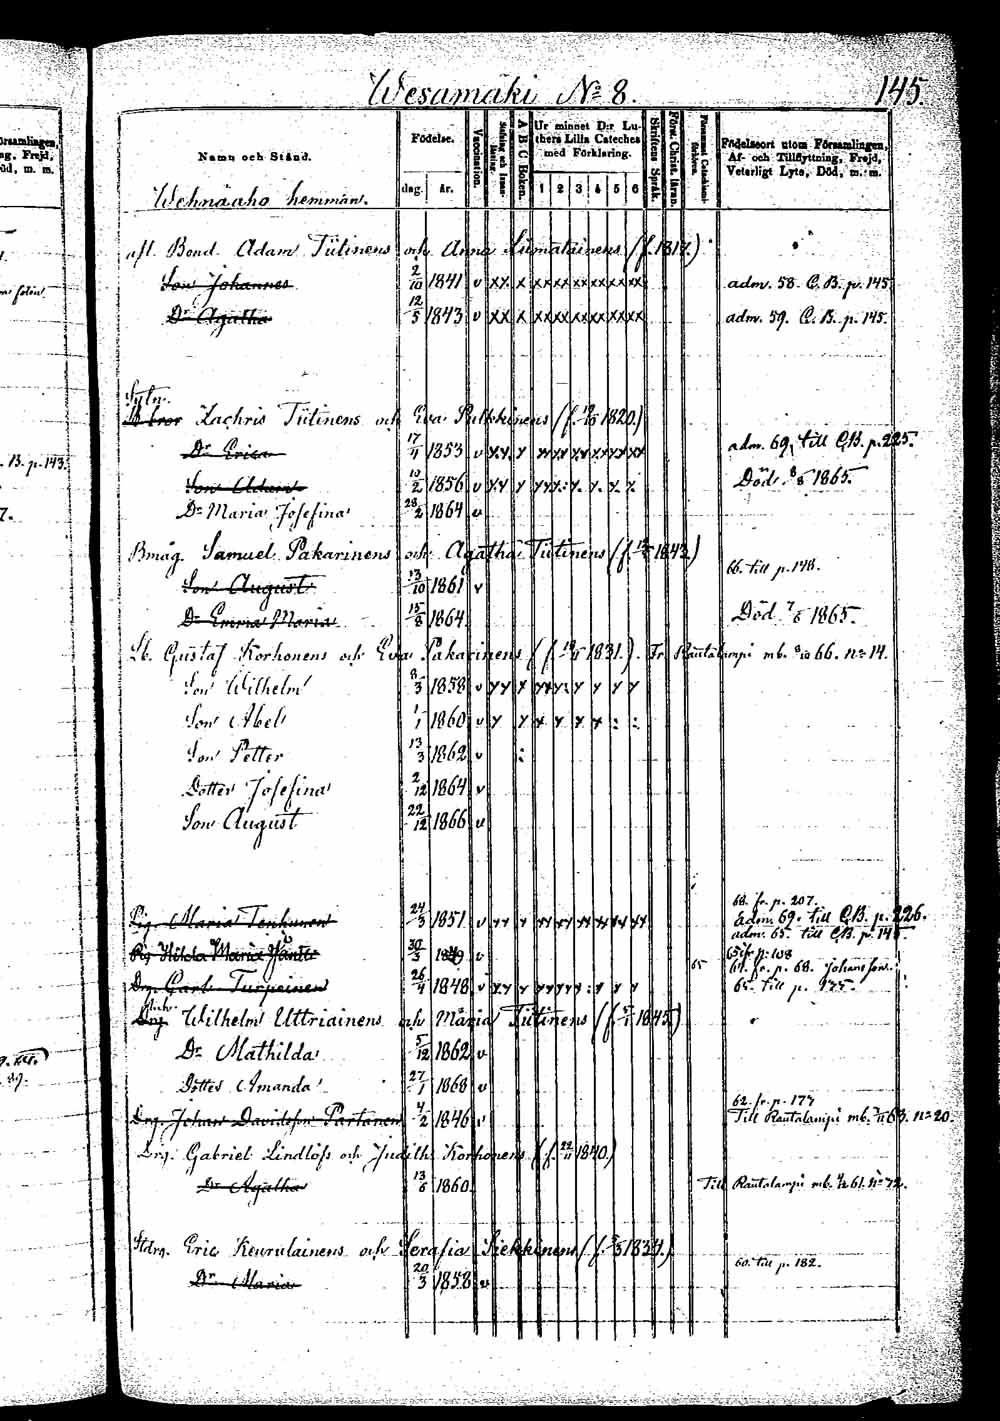 Wesamäki No 8. 145.
Namn och Stånd. Födelse. dag. år. Vaccination. A B C Boken. Ur minnet D:r Luthers Lilla Cateches med Förklaring. 1 2 3 4 5 6 Skriftens Språk. Först. Christ. läran. Födelseort utom Församlingen, Af- och Tillflyttning, Frejd, Veterligt Lyte, Död, m. m.
Wehnäaho hemman.
afl. Bond. Adam Tiitinens och Anna Liimatainens (f. 1817.)
Son Johannes 2/10 1841 v xx x adm. 58. C.B. p. 145
Dr Agatha 12/5 1843 v xx x adm. 59. C.B. p. 145.
Sytn.
Zachris Tiitinens och Eva Pulkkinens (f. 1820.)
Dr Erica 17/11 1853 v adm. 69, till C.B. p. 225.
Son Adam 10/2 1856 v Död 8/8 1865.
Dr Maria Josefina 28/2 1864 v
Bmåg. Samuel Pakarinens och Agatha Tiitinens (f. 12/5 1843.)
Son August 13/10 1861 v 66. till p. 148.
Dr Emma Maria 15/8 1864 Död 7/8 1865.
Lb. Gustaf Korhonens och Eva Pakarinens (f. 1831.) Fr. Rautalampi mb. 66. no 14.
Son Wilhelm 8/3 1858 v
Son Abel 1/1 1860 v
Son Petter 13/3 1862 v
Dotter Josefina 2/12 1864 v
Son August 22/12 1866 v
68. fr. p. 207.
Pig. Maria Tenhunen 24/3 1851 v adm. 69. till C.B. p. 226.
adm. 65. till C.B. p. 145.
Pig. Hilda Maria 30/3 v 65 fr p. 108
64. fr. p. 68. Johansson.
Drg. Carl Turpeinen 26/4 1848 v 65 65. till p. 175.
Drg. Wilhelm Uttriainens och Maria Tiitinens (f. 1845)
Dr Mathilda 5/12 1862 v
Dotter Amanda 27/1 1868 v
62. fr. p. 177
Drg. Johan Davidsson Partanen 4/2 1846 v Till Rautalampi mb. 63. no 20.
Drg. Gabriel Lindlöfs och Judith Korhonens (f. 22/11 1840.)
Dr Agatha 13/6 1860. Till Rautalampi mb. 61. no 72.
Stdrg. Eric Keurulainens och Serafia Siekkinens (f. 1834.)
60. till p. 182.
Dr Maria 20/3 1858 v